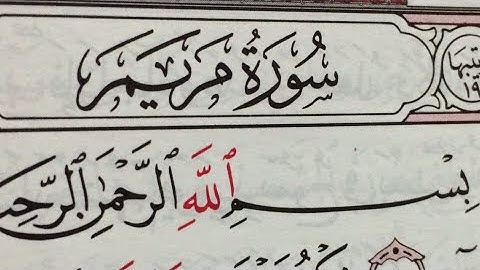 سُورَةُ مَرْيَمَ
بِسْمِ ٱللَّهِ ٱلرَّحْمَٰنِ ٱلرَّحِ